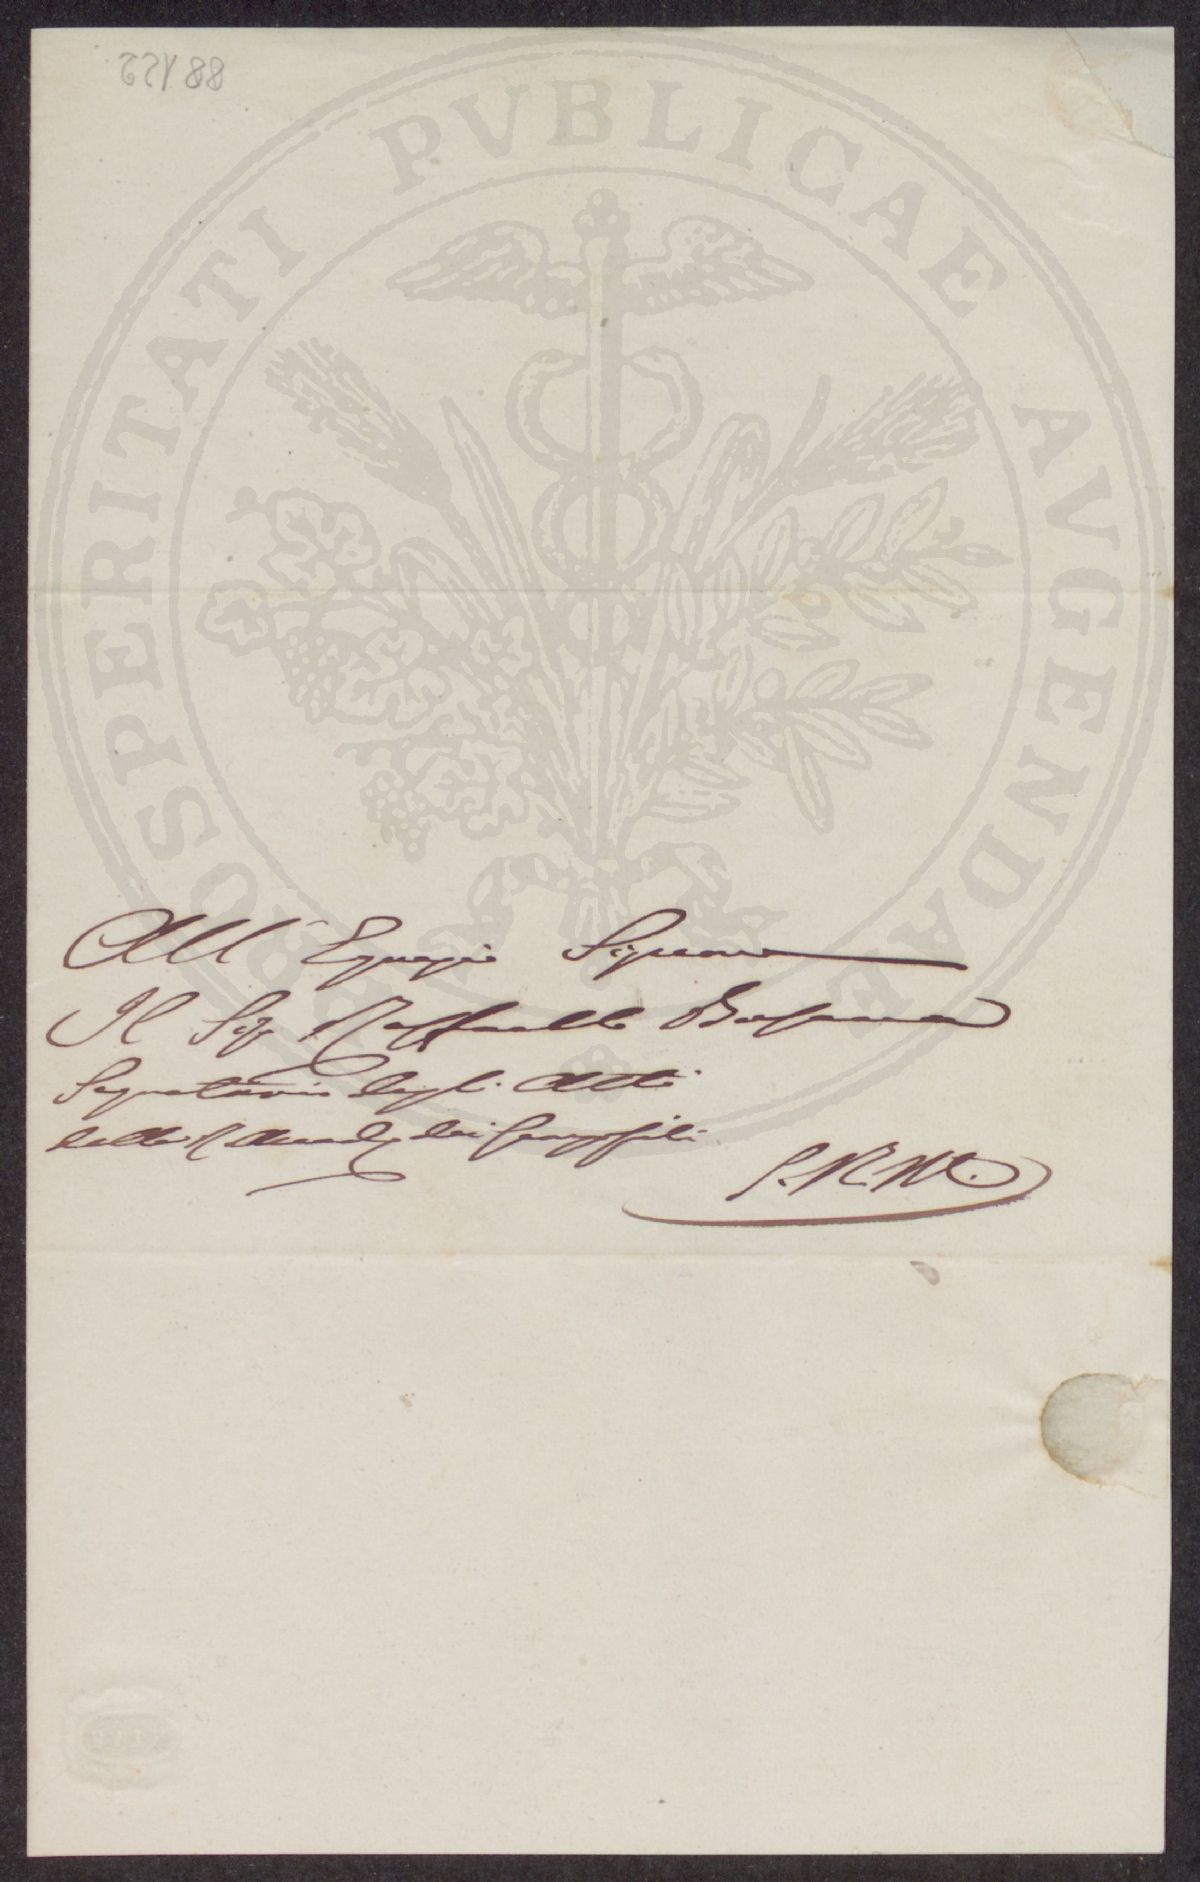 22188
PROSPERITATI PVBLICAE AVGENDAE
All' Egregio Signore
Il Sig. Raffaello
Segretario degli Atti
della R. Accad. dei Georgofili
S. R. M.